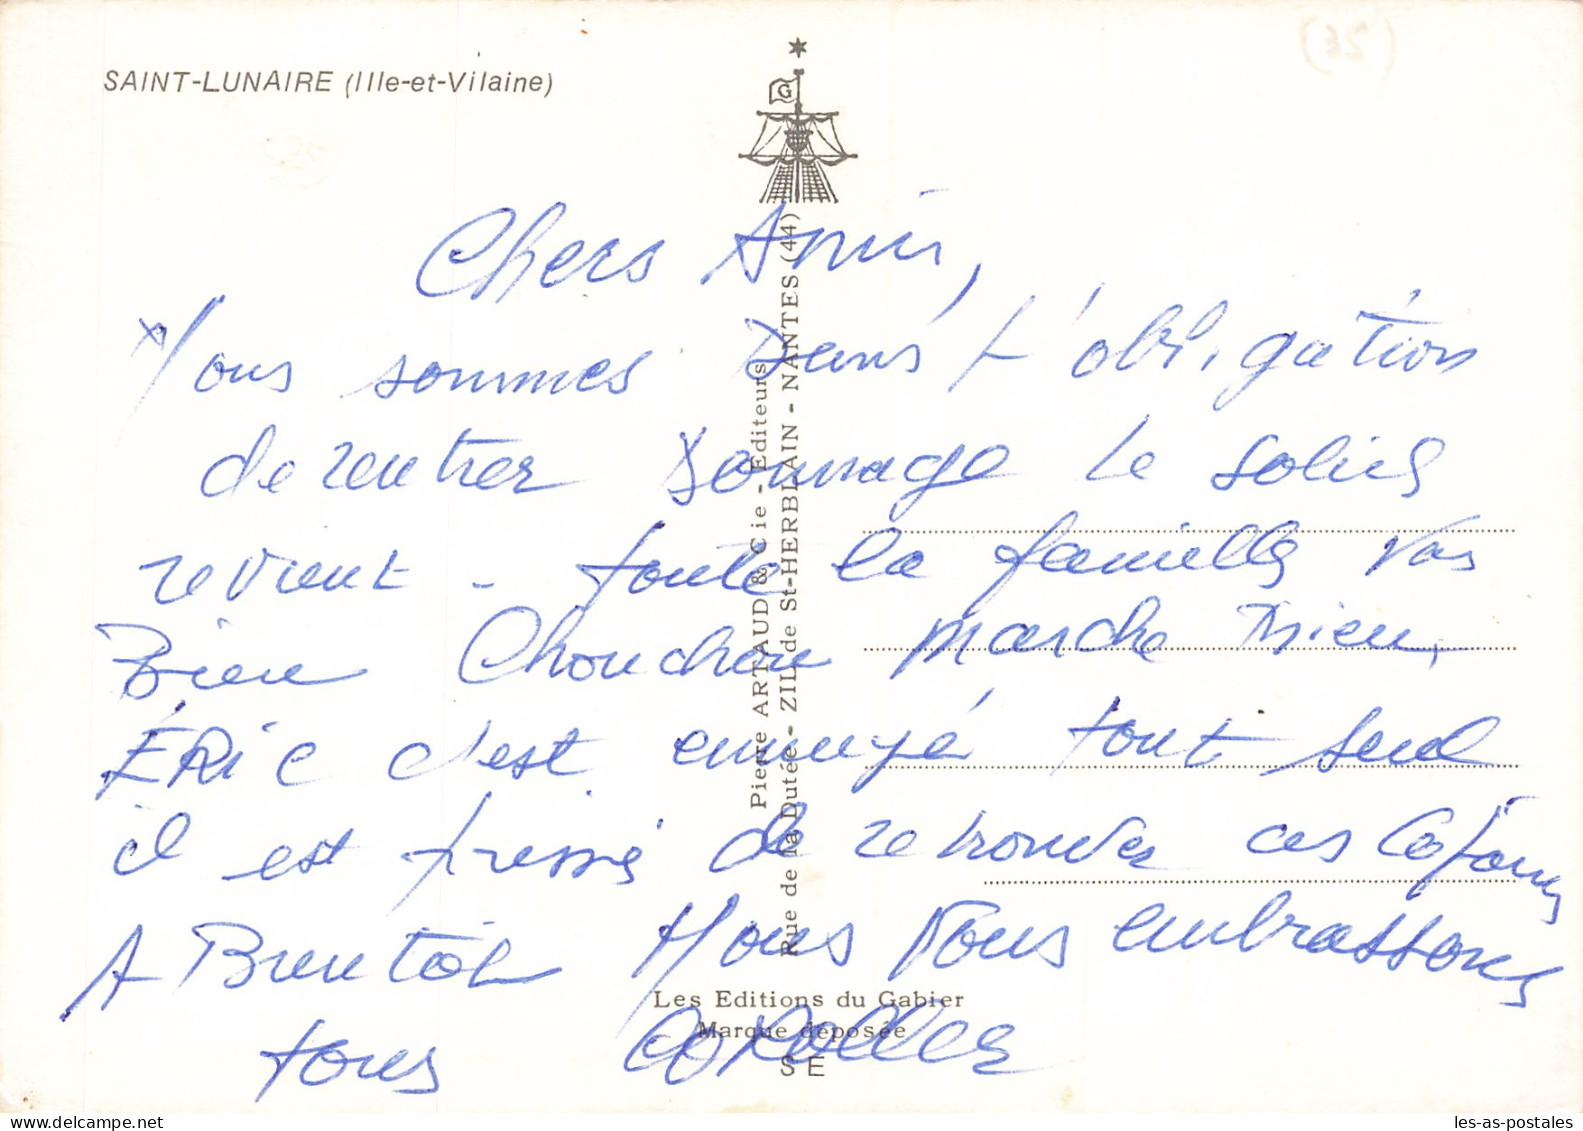 SAINT-LUNAIRE (Ille-et-Vilaine)
G
Chers Amis,
Nous sommes Dans l'obligation
de rentrer Dommage le soleil
revient - toute la famille vas
Bien Chouchou marche Bien,
ÉRIC c'est ennuyé tout seul
il est pressé de retrouver ces Copains
A Bientôt Nous Vous embrassons
tous
Pierre ARTAUD & Cie - Editeurs
Rue de la Dutée - ZIL de St-HERBLAIN - NANTES (44)
Les Editions du Gabier
Marque déposée
S E
les-as-postales